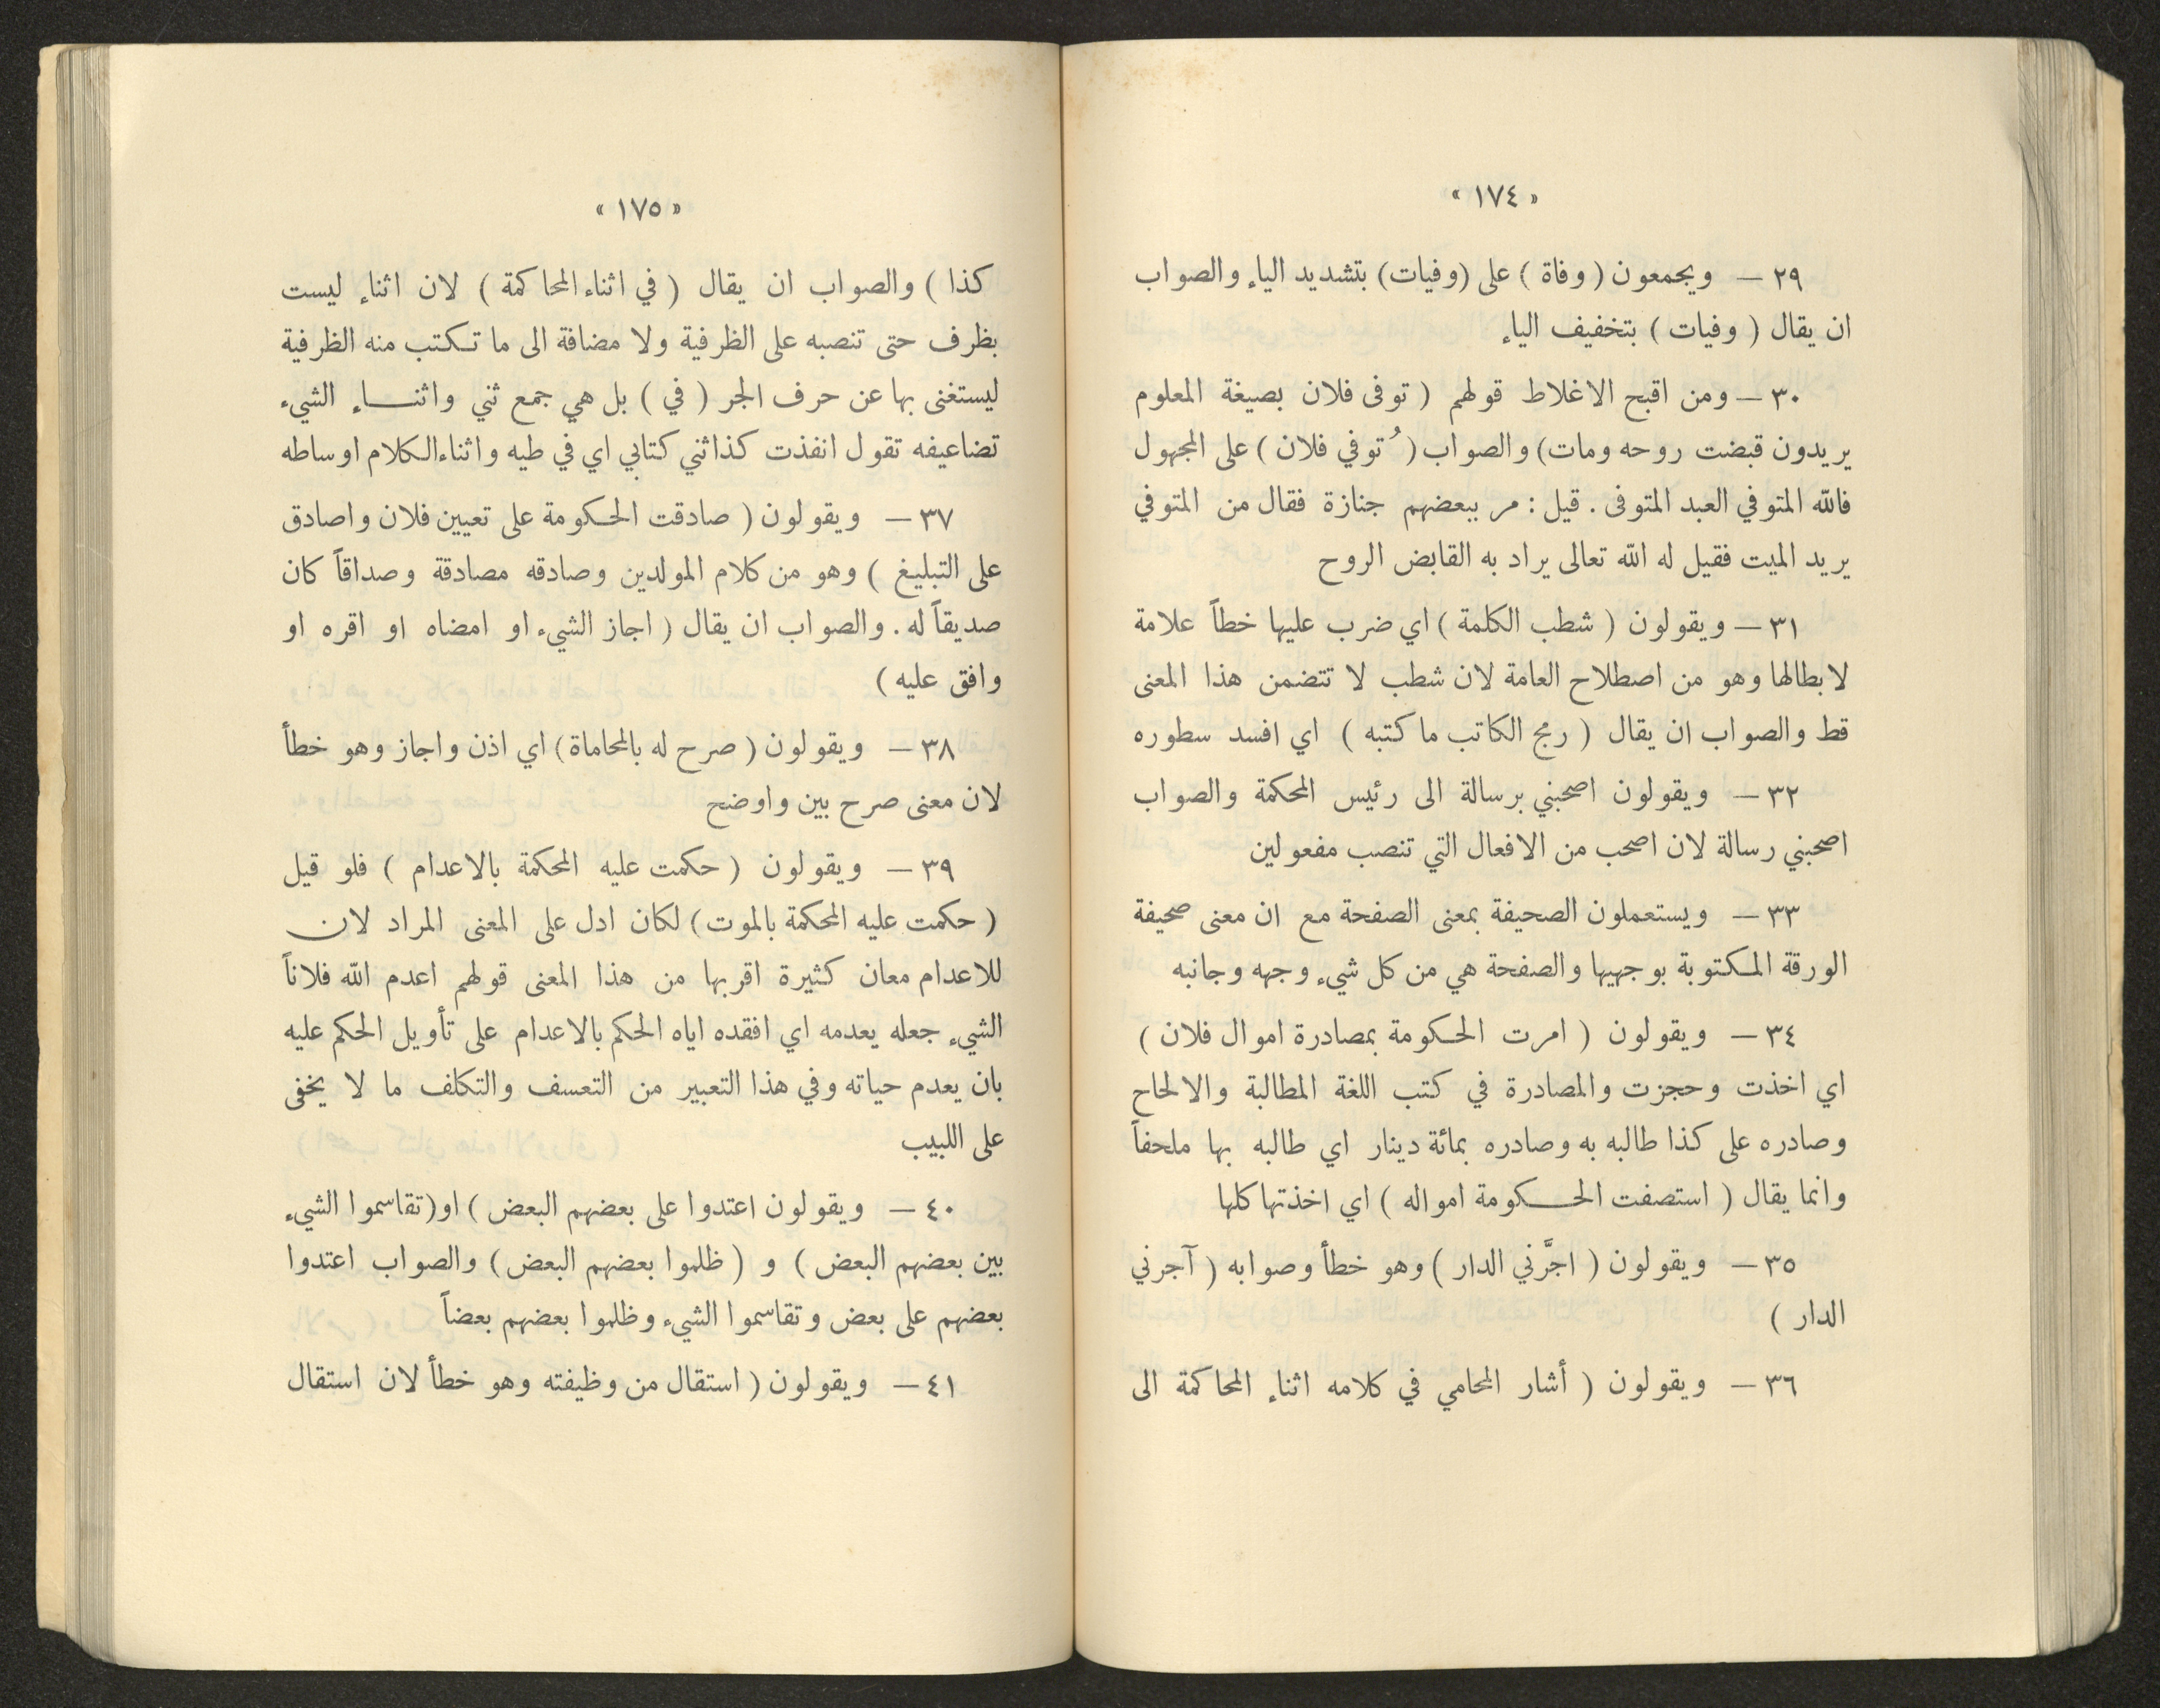 « ١٧٤ »
٢٩ — ويجمعون ( وفاة ) على (وفيات) بتشديد الياء والصواب
ان يقال ( وفيات ) بتخفيف الياء
٣٠ — ومن اقبح الاغلاط قولهم ( توفى فلان بصيغة المعلوم
يريدون قبضت روحه ومات) والصواب ( تُوفي فلان ) على المجهول
فالله المتوفي العبد المتوفى . قيل : مر ببعضهم جنازة فقال من المتوفي
يريد الميت فقيل له الله تعالى يراد به القابض الروح
٣١ — ويقولون ( شطب الكلمة ) اي ضرب عليها خطاً علامة
لابطالها وهو من اصطلاح العامة لان شطب لا تتضمن هذا المعنى
قط والصواب ان يقال ( رمج الكاتب ما كتبه ) اي افسد سطوره
٣٢ — ويقولون اصحبني برسالة الى رئيس المحكمة والصواب
اصحبني رسالة لان اصحب من الافعال التي تنصب مفعولين
٣٣ — ويستعملون الصحيفة بمعنى الصفحة مع ان معنى صحيفة
الورقة المكتوبة بوجهيها والصفحة هي من كل شيء وجهه وجانبه
٣٤ — ويقولون ( امرت الحكومة بمصادرة اموال فلان )
اي اخذت وحجزت والمصادرة في كتب اللغة المطالبة والالحاح
وصادره على كذا طالبه به وصادره بمائة دينار اي طالبه بها ملحفاً
وانما يقال ( استصفت الحكومة امواله ) اي اخذتها كلها
٣٥ — ويقولون ( اجَّرني الدار ) وهو خطأ وصوابه ( آجرني
الدار )
٣٦ — ويقولون ( أشار المحامي في كلامه اثناء المحاكمة الى
« ١٧٥ »
كذا ) والصواب ان يقال ( في اثناء المحاكمة ) لان اثناء ليست
بظرف حتى تنصبه على الظرفية ولا مضافة الى ما تكتب منه الظرفية
ليستغنى بها عن حرف الجر ( في ) بل هي جمع ثني واثناء الشيء
تضاعيفه تقول انفذت كذا ثني كتابي اي في طيه واثناء الكلام اوساطه
٣٧ — ويقولون ( صادقت الحكومة على تعيين فلان واصادق
على التبليغ ) وهو من كلام المولدين وصادقه مصادقة وصداقاً كان
صديقاً له . والصواب ان يقال ( اجاز الشيء او امضاه او اقره او
وافق عليه )
٣٨ — ويقولون ( صرح له بالمحاماة ) اي اذن واجاز وهو خطأ
لان معنى صرح بين واوضح
٣٩ — ويقولون ( حكمت عليه المحكمة بالاعدام ) فلو قيل
( حكمت عليه المحكمة بالموت ) لكان ادل على المعنى المراد لان
للاعدام معان كثيرة اقربها من هذا المعنى قولهم اعدم الله فلاناً
الشيء جعله يعدمه اي افقده اياه الحكم بالاعدام على تأويل الحكم عليه
بان يعدم حياته وفي هذا التعبير من التعسف والتكلف ما لا يخفى
على اللبيب
٤٠ — ويقولون اعتدوا على بعضهم البعض ) او (تقاسموا الشيء
بين بعضهم البعض ) و ( ظلموا بعضهم البعض ) والصواب اعتدوا
بعضهم على بعض وتقاسموا الشيء وظلموا بعضهم بعضاً
٤١ — ويقولون ( استقال من وظيفته وهو خطأ لان استقال